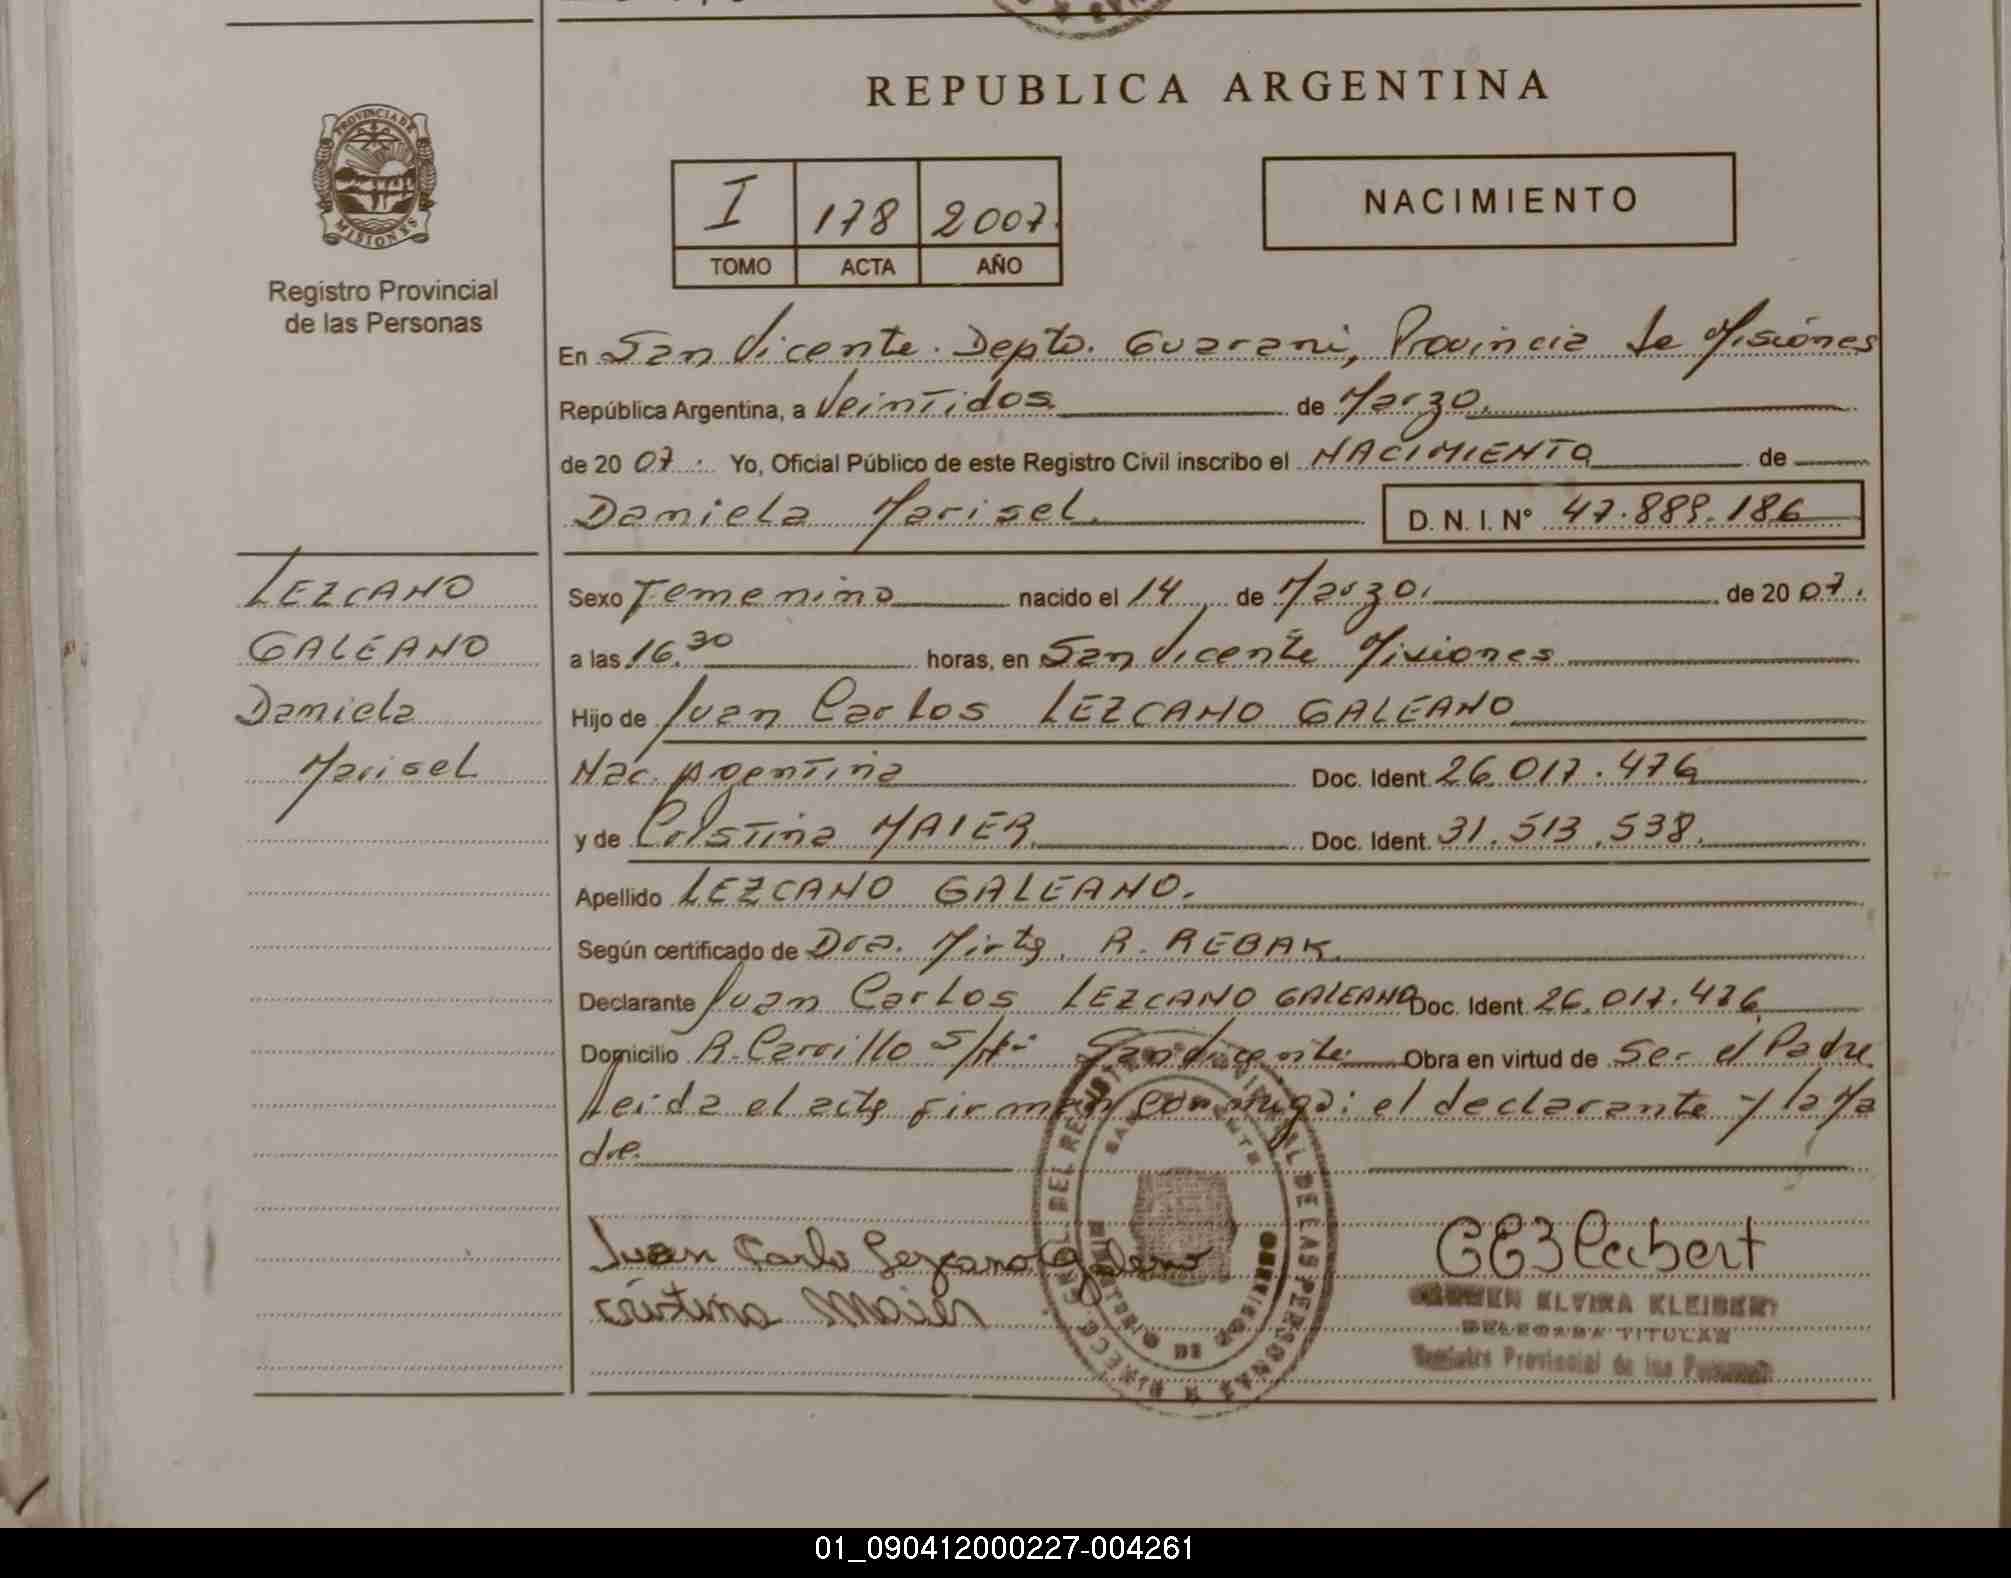 REPUBLICA ARGENTINA
PROVINCIA DE
MISIONES
Registro Provincial
de las Personas
I 178 2007
TOMO ACTA AÑO
NACIMIENTO
En San Vicente. Depto. Guarani, Provincia de Misiónes
República Argentina, a Veintidos de Marzo.
de 20 07. Yo, Oficial Público de este Registro Civil inscribo el NACIMIENTO de
Daniela Marisel. D. N. I. N° 47.889.186
LEZCANO
GALEANO
Daniela
Marisel
Sexo Femenino nacido el 14 de Marzo. de 20 07.
a las 16.30 horas, en San Vicente Misiones
Hijo de Juan Carlos LEZCANO GALEANO
Nac. Argentina Doc. Ident. 26.017.476
y de Cristina MAIER Doc. Ident. 31.513.538.
Apellido LEZCANO GALEANO.
Según certificado de Dra. Mirta R. REBAK.
Declarante Juan Carlos LEZCANO GALEANO Doc. Ident. 26.017.476
Domicilio R. Carrillo S/Nº San Vicente Obra en virtud de Ser el Padre
Leida el acta firman conmigo: el declarante y la Ma
dre.
Juan Carlo Lezcano Galeano
Cristina Maier
CARMEN ELVIRA KLEIBERT
DELEGADA TITULAR
Registro Provincial de las Personas
01_090412000227-004261